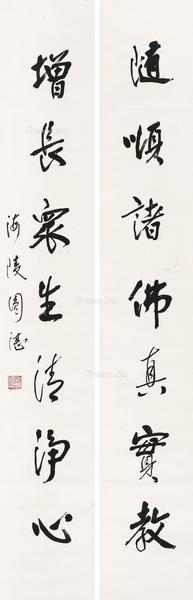 隨順諸佛真實教
增長眾生清淨心
海陵圓湛